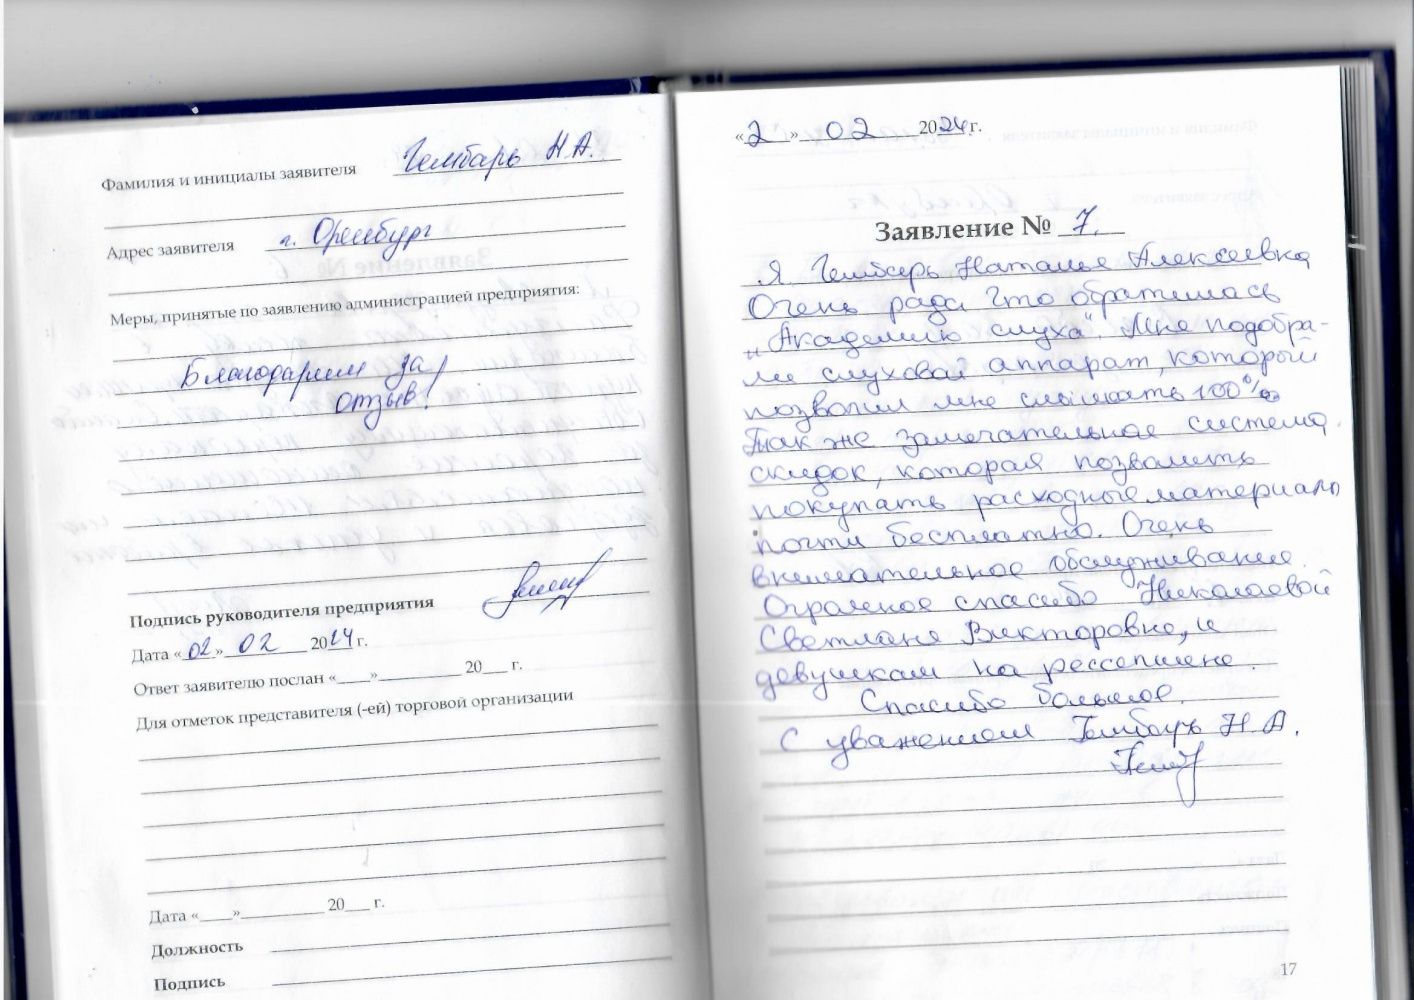 Фамилия и инициалы заявителя Гембарь Н.А.
Адрес заявителя г. Оренбург
Меры, принятые по заявлению администрацией предприятия:
Благодарим за
отзыв!
Подпись руководителя предприятия
Дата «02» 02 2024 г.
Ответ заявителю послан «____»__________ 20___ г.
Для отметок представителя (-ей) торговой организации
Дата «____»__________ 20___ г.
Должность
Подпись
«2» 02 2024 г.
Заявление № 7.
Я Гембарь Наталья Алексеевна
Очень рада что обратилась
"Академию слуха". Мне подобра-
ли слуховой аппарат, который
позволил мне слышать 100%
Так же замечательная система
скидок, которая позволить
покупать расходные материалы
почти бесплатно. Очень
внимательное обслуживание.
Огромное спасибо Николаевой
Светлане Викторовне, и
девушкам на рессепшене.
Спасибо большое.
С уважением Гембарь Н.А.
17